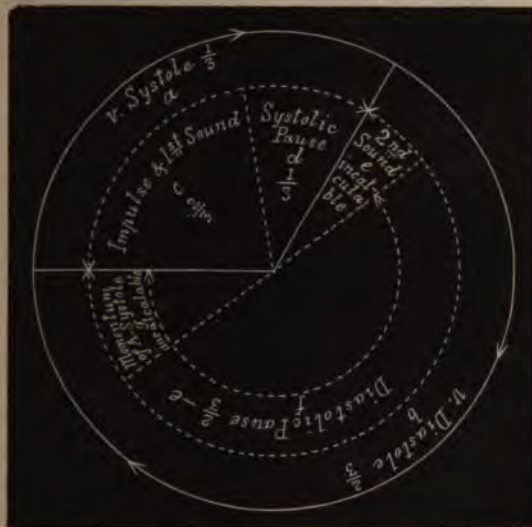 v. Systole 1/3
a
Impulse & 1st Sound
c
Systolic
Pause
d
1/3
2nd
Sound
e
incal
cula
ble
v. Diastole 2/3
b
Diastolic Pause
f
Momentum
of A. Systole
g
incalculable